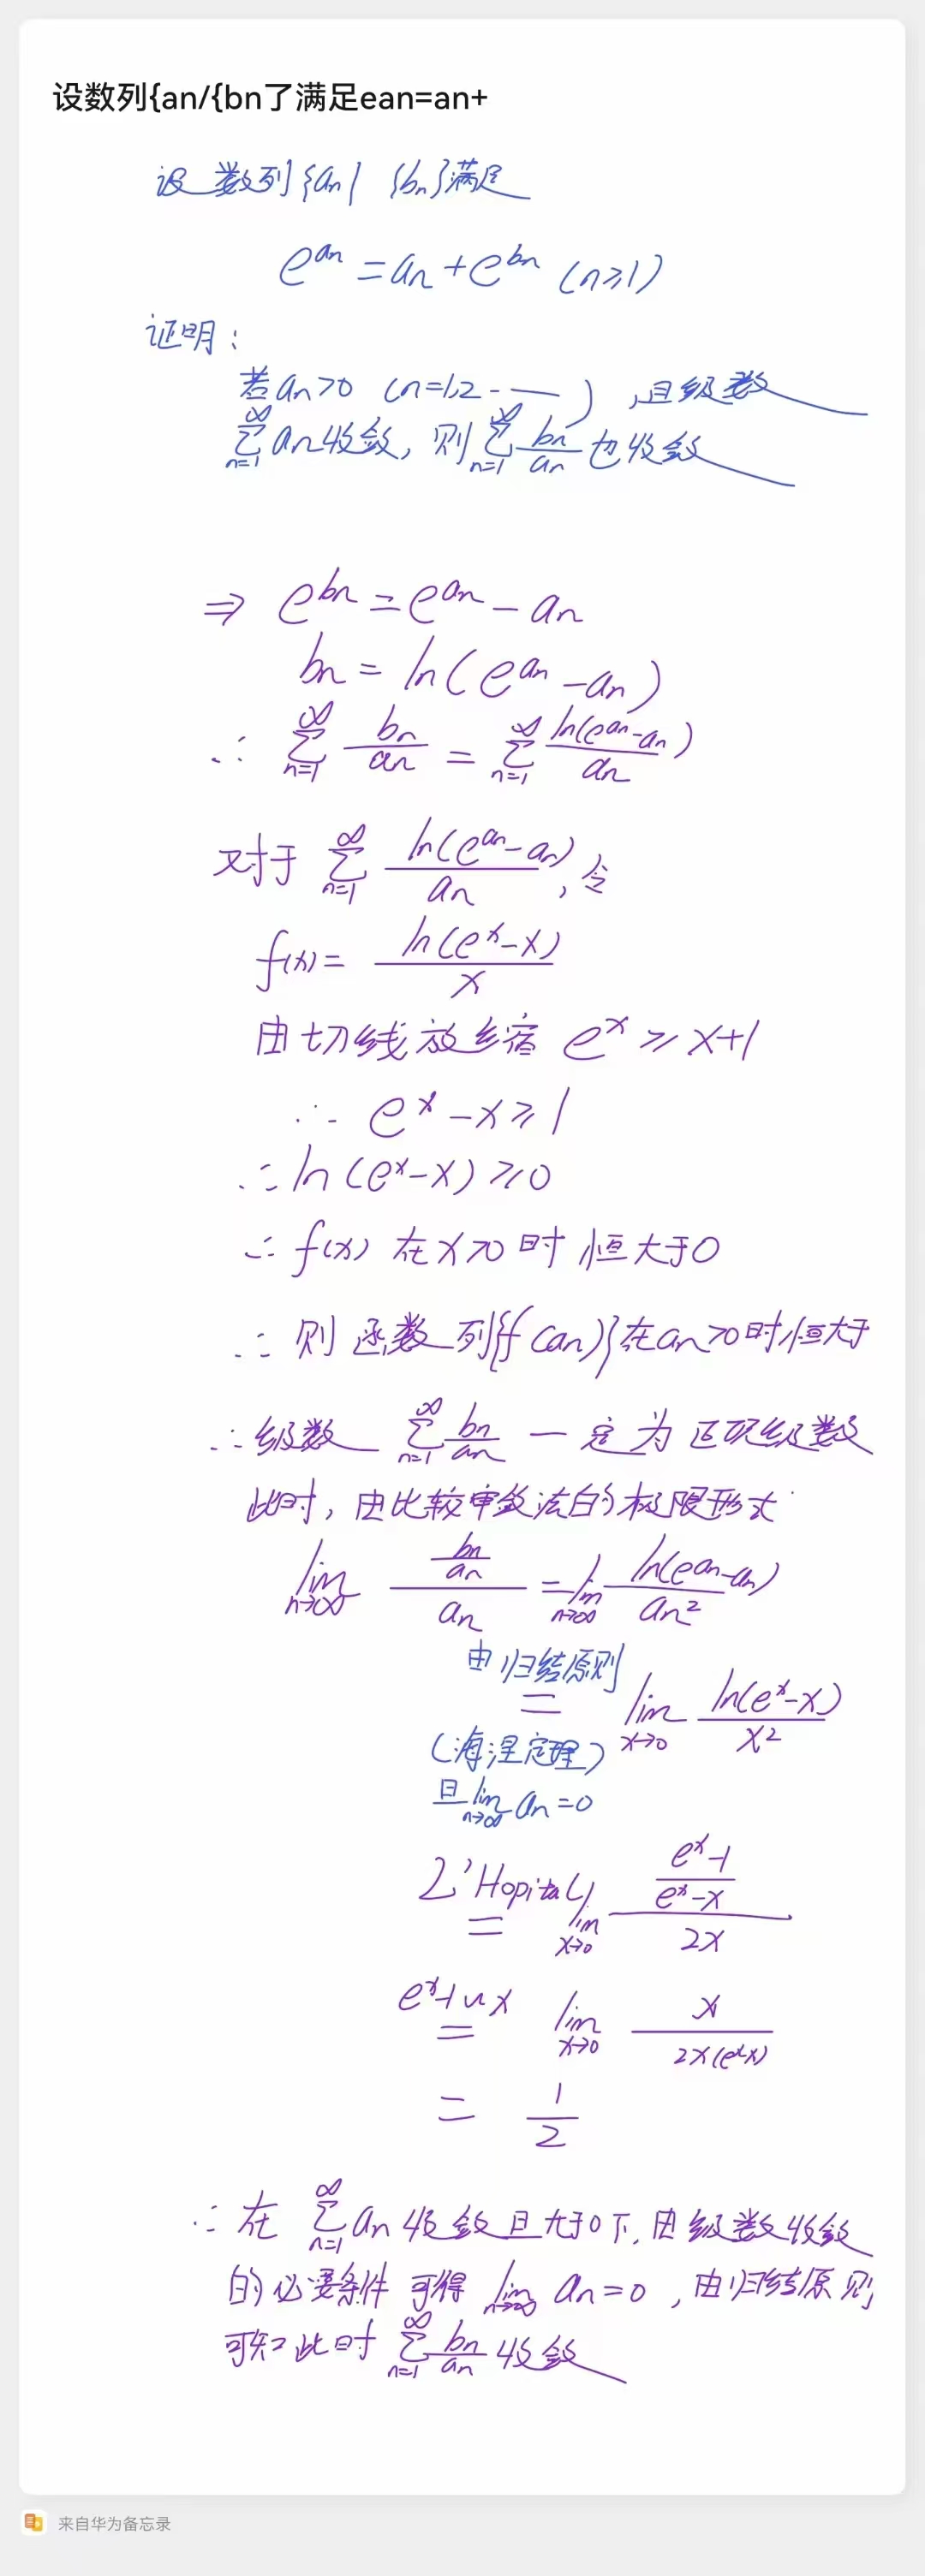 设数列{an/{bn了满足ean=an+
设数列{an} {bn}满足
e^{an} = an + e^{bn} (n≥1)
证明:
若an>0 (n=1,2-——), 且级数
∑_{n=1}^{∞} an收敛, 则∑_{n=1}^{∞} bn/an 也收敛
⇒ e^{bn} = e^{an} - an
bn = ln(e^{an} - an)
∴ ∑_{n=1}^{∞} bn/an = ∑_{n=1}^{∞} ln(e^{an}-an)/an
对于 ∑_{n=1}^{∞} ln(e^{an}-an)/an, 令
f(x) = ln(e^x-x)/x
由切线放缩 e^x ≥ x+1
∴ e^x - x ≥ 1
∴ ln(e^x-x) ≥ 0
∴ f(x) 在x>0时恒大于0
∴ 则函数列{f(an)}在an>0时恒大于
∴ 级数 ∑_{n=1}^{∞} bn/an 一定为正项级数
此时, 由比较审敛法的极限形式
lim_{n→∞} (bn/an)/an = lim_{n→∞} ln(e^{an}-an)/an²
由归结原则
= lim_{x→0} ln(e^x-x)/x²
(海涅定理)
且lim_{n→∞} an=0
L'Hopital = lim_{x→0} ((e^x-1)/(e^x-x))/2x
e^x-1~x = lim_{x→0} x/(2x(e^x-x))
= 1/2
∴ 在 ∑_{n=1}^{∞} an 收敛且大于0下, 由级数收敛
的必要条件可得 lim_{n→∞} an=0, 由归结原则
可知此时 ∑_{n=1}^{∞} bn/an 收敛
来自华为备忘录